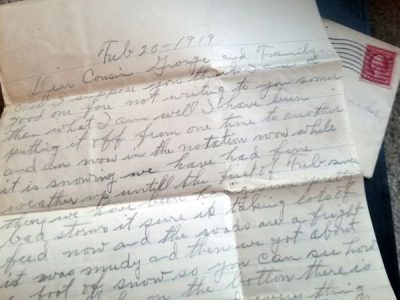 Feb 20 - 1919.
Dear Cousin George and Family.
well I suppose you think I am a
good one for not writing to you sooner
than what I am. well I have been
putting it off from one time to another
and am now in the notation now while
it is snowing we have had fine
weather up untill the first of Feb since
then we have been
bad storms it sure is taking lots of
feed now and the roads are a fright
it was mudy and then we got about
a foot of snow so you can see how
on the bottom there is
every thing